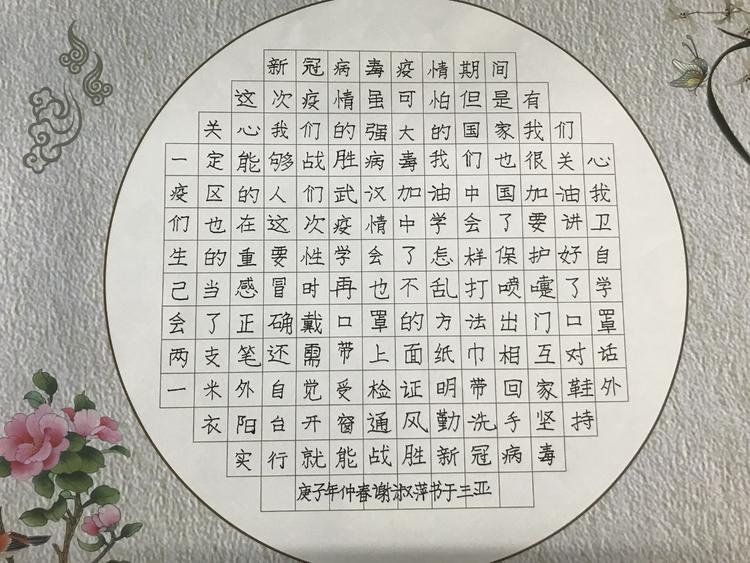 新冠病毒疫情期间
这次疫情虽可怕但是有
关心我们的强大的国家我们
一定能够战胜病毒我们也很关心
疫区的人们武汉加油中国加油我
们也在这次疫情中学会了要讲卫
生的重要性学会了怎样保护好自
己当感冒时再也不乱打喷嚏了学
会了正确戴口罩的方法出门口罩
两支笔还需带上面纸巾相互对话
一米外自觉受检证明带回家鞋外
衣阳台开窗通风勤洗手坚持
实行就能战胜新冠病毒
庚子年仲春谢淑萍书于三亚